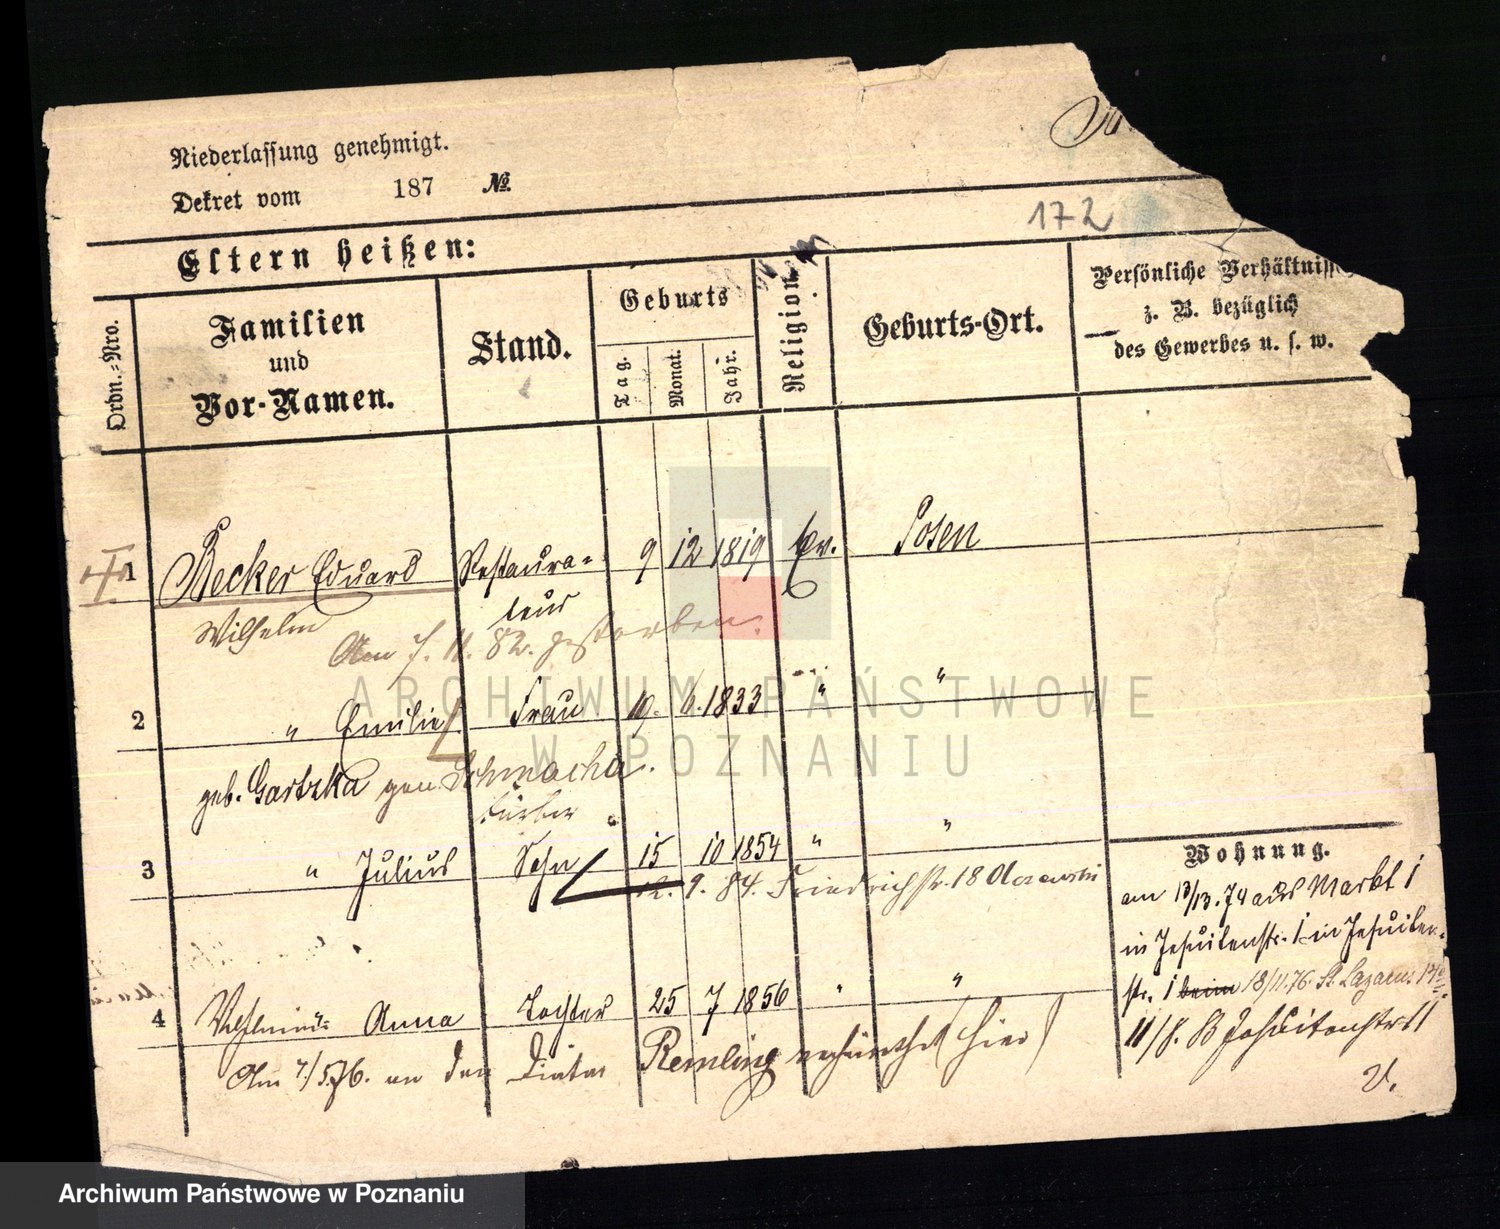 Niederlassung genehmigt.
Dekret vom 187 №
172
Eltern heißen:
Ordn.-Nro.
Familien und Vor-Namen.
Stand.
Geburts
Tag. Monat. Jahr.
Religion.
Geburts-Ort.
Persönliche Verhältniss
z. B. bezüglich
des Gewerbes u. s. w.
1 Becker Eduard Restaura- 9 12 1819 Ev. Posen
Wilhelm teur
Am 7. 11. 82. gestorben.
2 " Emilie Frau 19. 6. 1833 " "
geb. Gartzka gen. Schmacha.
3 " Julius Sohn 15 10 1854 " "
12. 9. 84. Friedrichstr. 18
4 Anna Tochter 25 7 1856 " "
Am 7/5 76. an den Remling (hier)
Wohnung.
am 13/13. 74 aus Markt 1
in Jesuitenstr. 1 in Jesuiten-
str. 1 beim 18/11. 76. St. Lazarus
11/8. Jesuitenstr 11
V.
ARCHIWUM PAŃSTWOWE
W POZNANIU
Archiwum Państwowe w Poznaniu